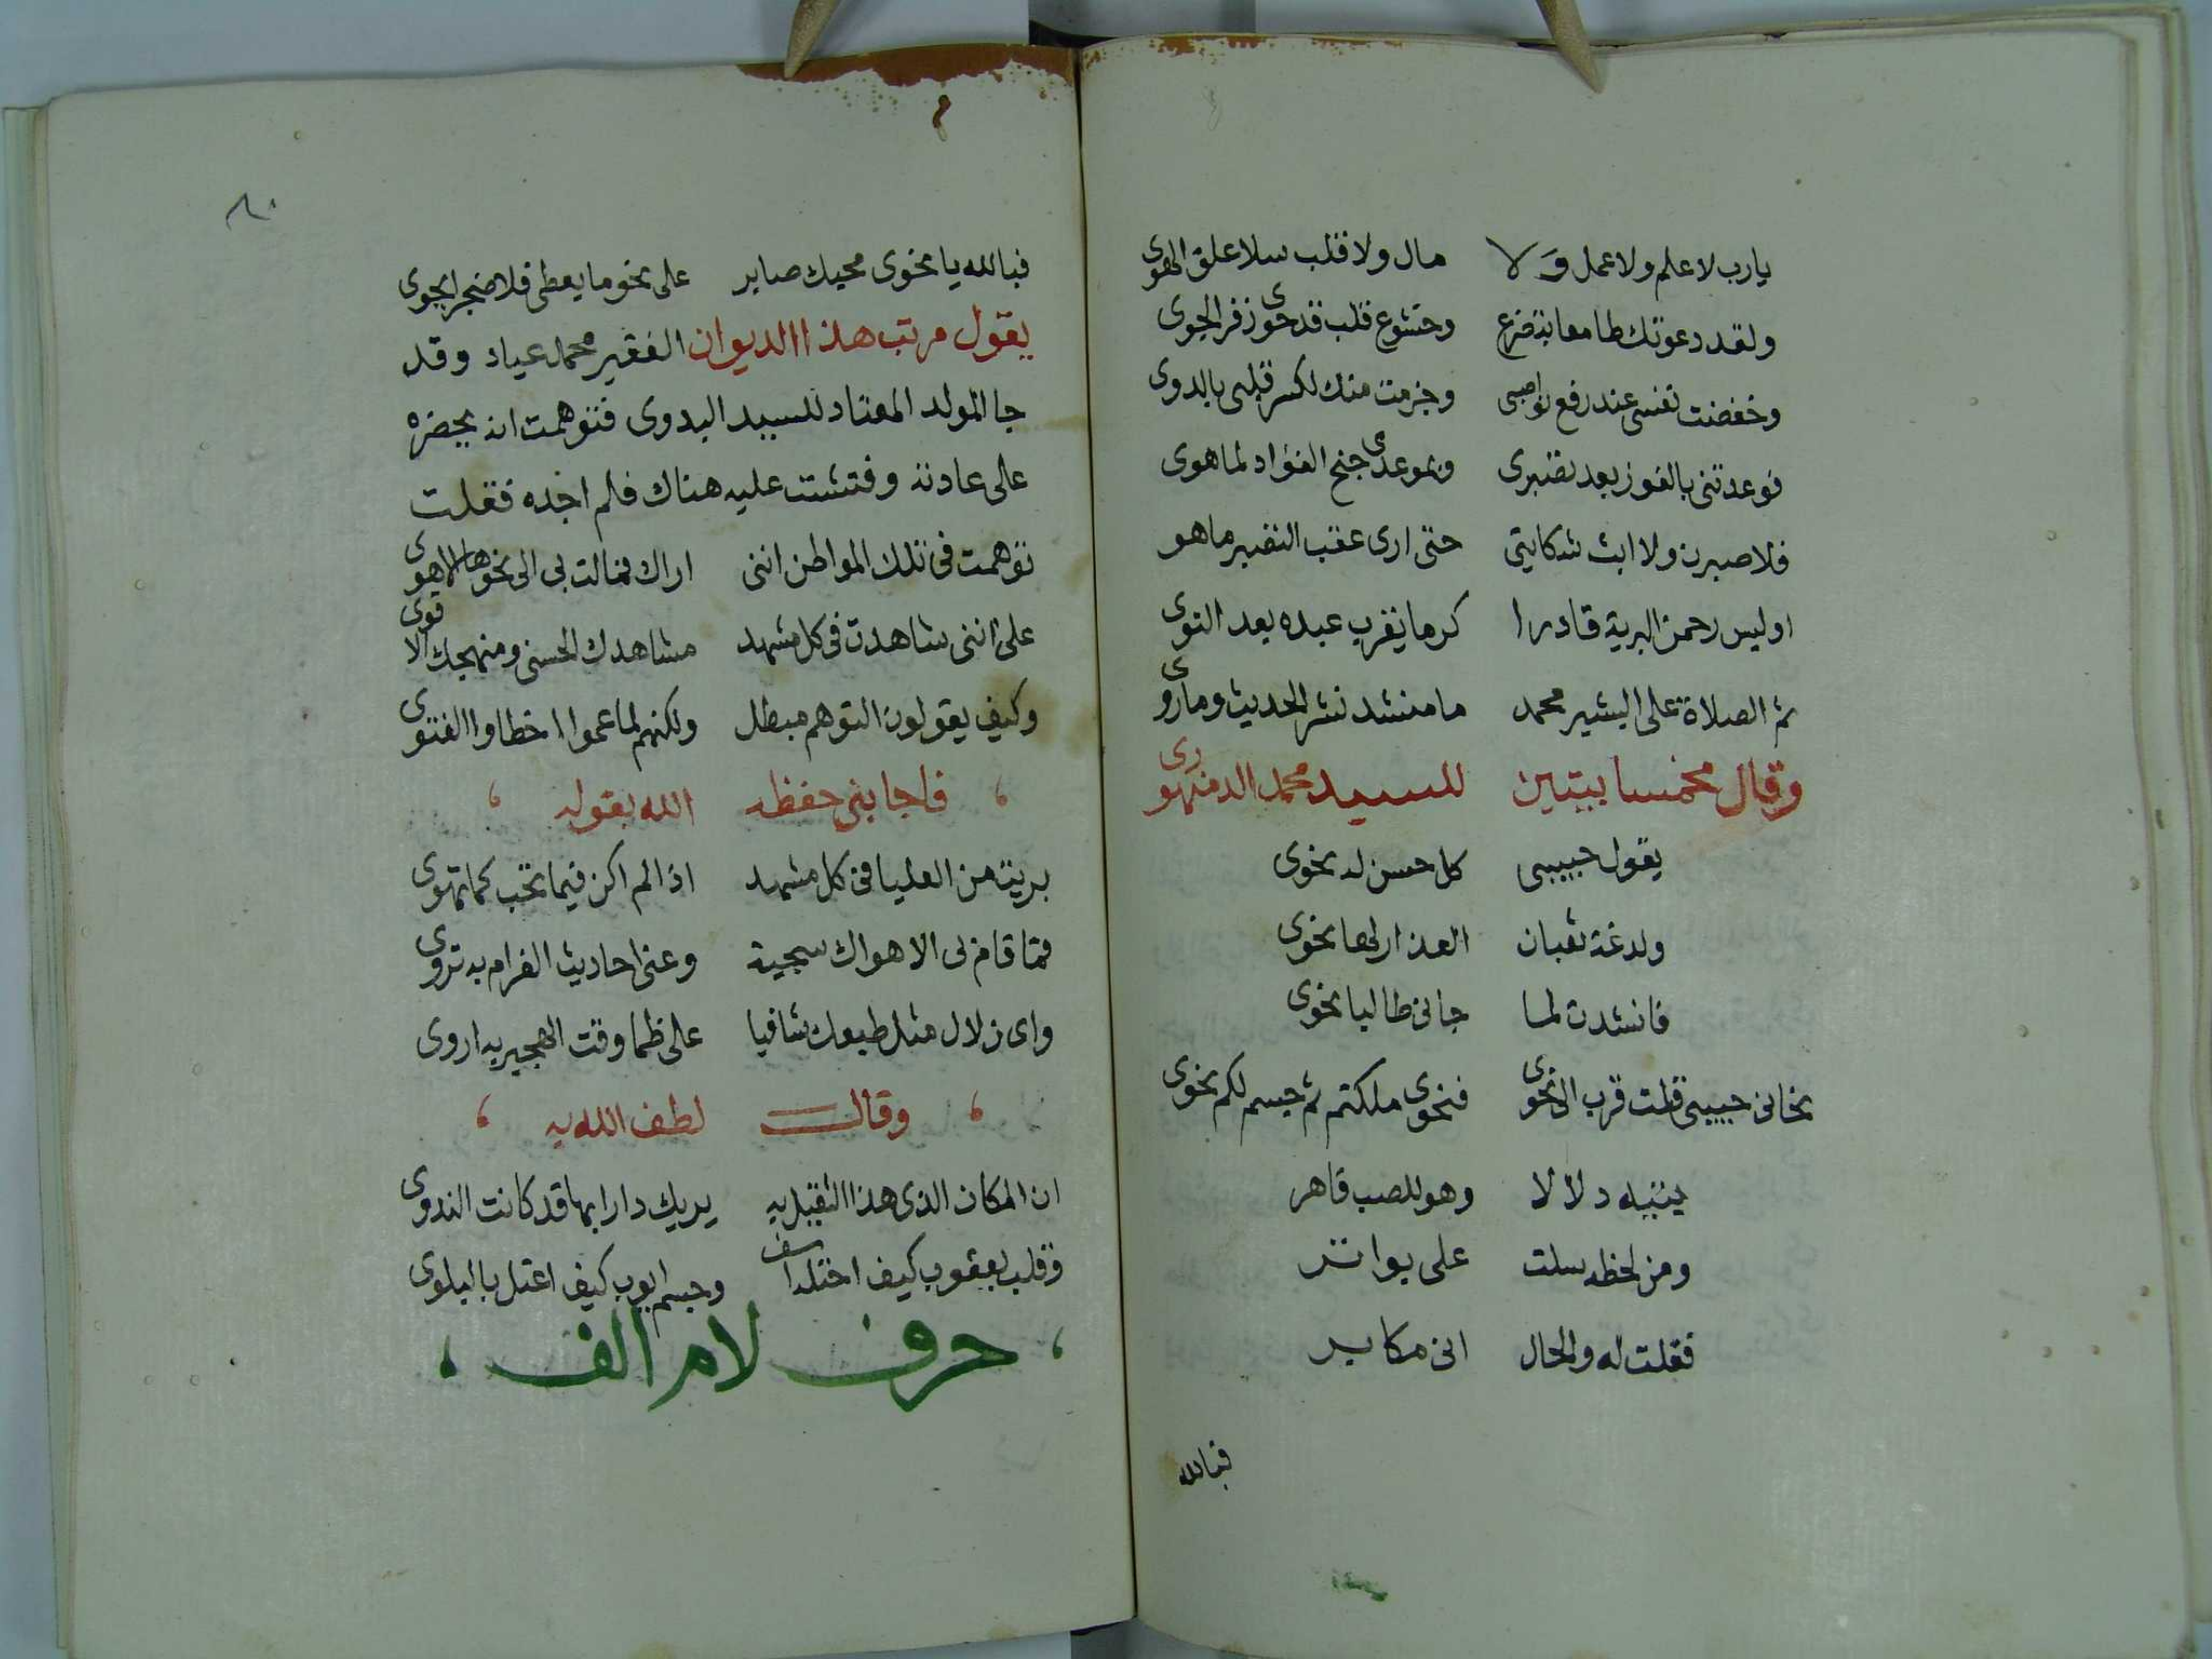 يارب لا علم ولا عمل ولا مال ولا قلب سلا علق الهوى
ولقد دعوتك طامعا بتضرع وخشوع قلب قد حوى زفر الجوى
وخفضت نفسى عند رفع نواصبى وجزمت منك لكسر قلبى بالدوى
فوعدتنى بالفوز بعد تصبرى وبموعدى جنح الفؤاد لما هوى
فلاصبرن ولا ابث شكايتى حتى ارى عقب التصبر ما هو
اوليس رحمن البرية قادرا كرما يقرب عبده بعد النوى
ثم الصلاة على البشير محمد ما منشد نشر الحديث وما روى
وقال مخمسا بيتين للسيد محمد الدمنهورى
يقول حبيبى كل حسن له نحوى
ولدغة ثعبان العذار لها نحوى
فانشدت لما جانى طالبا نحوى
نحانى حبيبى قلت قرب الى نحوى فنحوى ملكتم ثم جسم لكم نحوى
يتيه دلالا وهو للصب قاهر
ومن لحظه سلت على بواتر
فقلت له والحال انى مكابد
فبالله
٨٠
فبالله يا نحوى محبك صابر على نحو ما يعطى فلا ضجر يحوى
يقول مرتب هذا الديوان الفقير محمد عياد وقد
جا المولد المعتاد للسيد البدوى فتوهمت انه يحضره
على عادته وفتشت عليه هناك فلم اجده فقلت
توهمت فى تلك المواطن اننى اراك فمالت بى الى نحوها الاهوى
على اننى شاهدت فى كل مشهد مشاهدك الحسنى ومنهجك الاقوى
وكيف يقولون التوهم مبطل ولكنهم لما عموا اخطاوا الفتوى
فاجابنى حفظه الله بقوله
بريت من العليا فى كل مشهد اذا لم اكن فيما تحب كما تهوى
فما قام بى الا هواك سجية وعنى احاديث الغرام به تروى
واى زلال مثل طبعك شافيا على ظما وقت الهجير به اروى
وقال لطف الله به
ان المكان الذى هذا الثقيل به يريك دارا بها قد كانت الندوى
وقلب يعقوب كيف اختلد اسف وجسم ايوب كيف اعتل بالبلوى
حرف لام الف